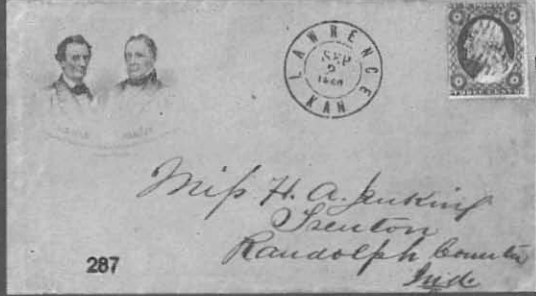 LAWRENCE
SEP
2
1860
KAN
THREE CENTS
Miss H. A. Jenkins
Trenton
Randolph County
Ind.
287